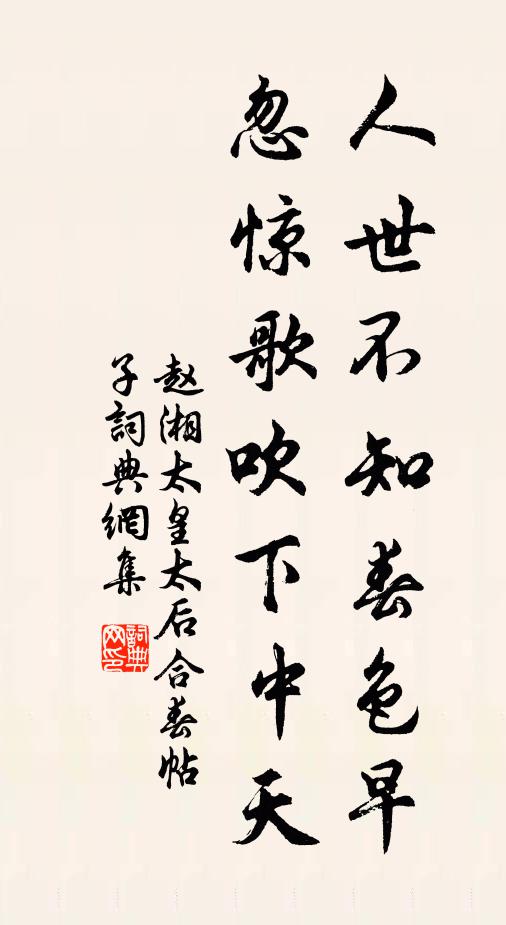 人世不知春色早
忽惊歌吹下中天
赵湘太皇太后合春帖
子詞典網集
詞典
网印